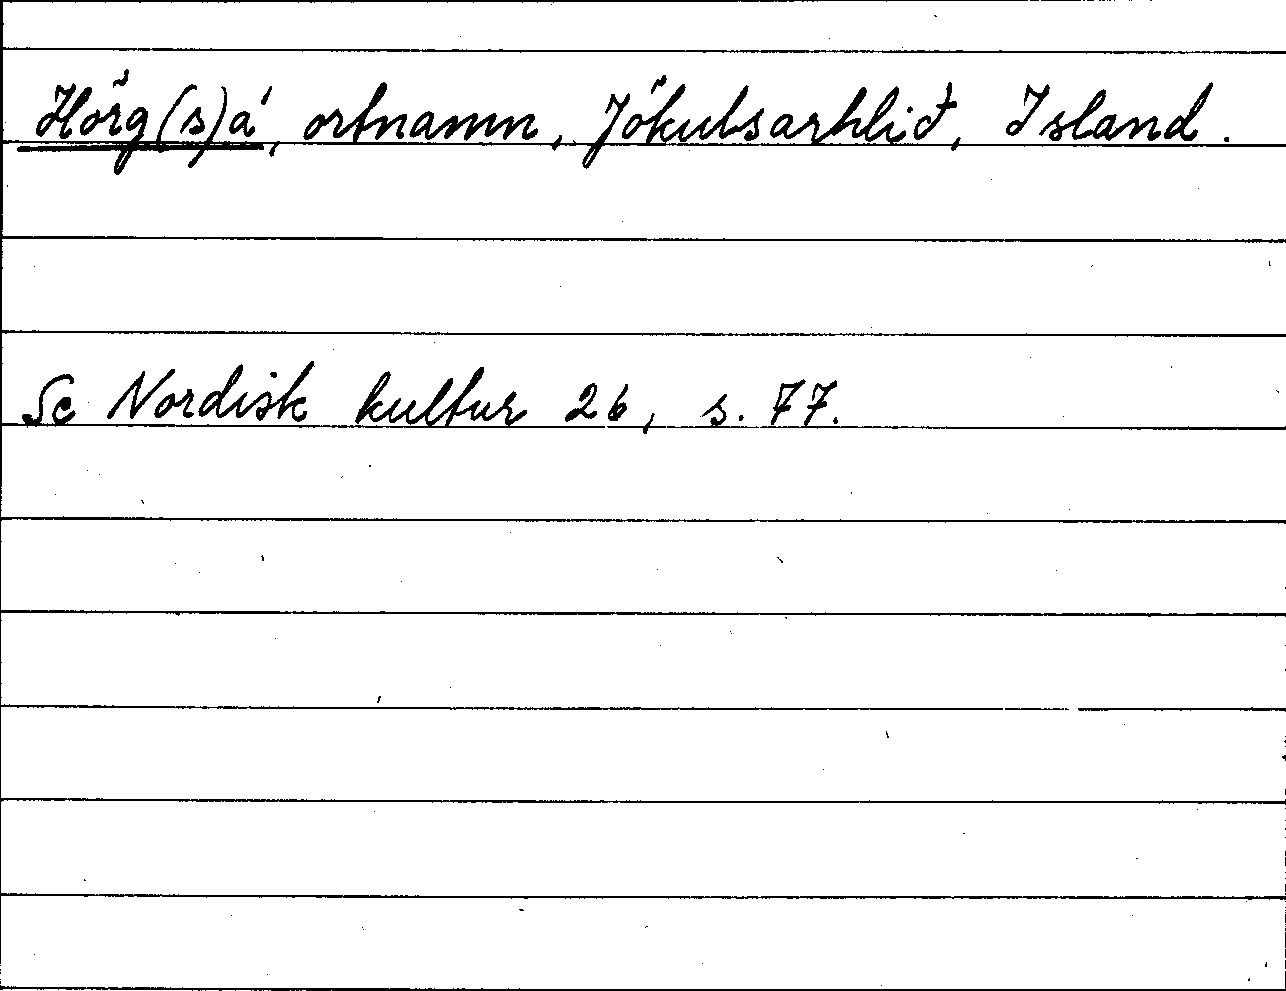 Hörg(s)á, ortnamn, Jökulsarhlið, Island.
Se Nordisk kultur 26, s. 77.